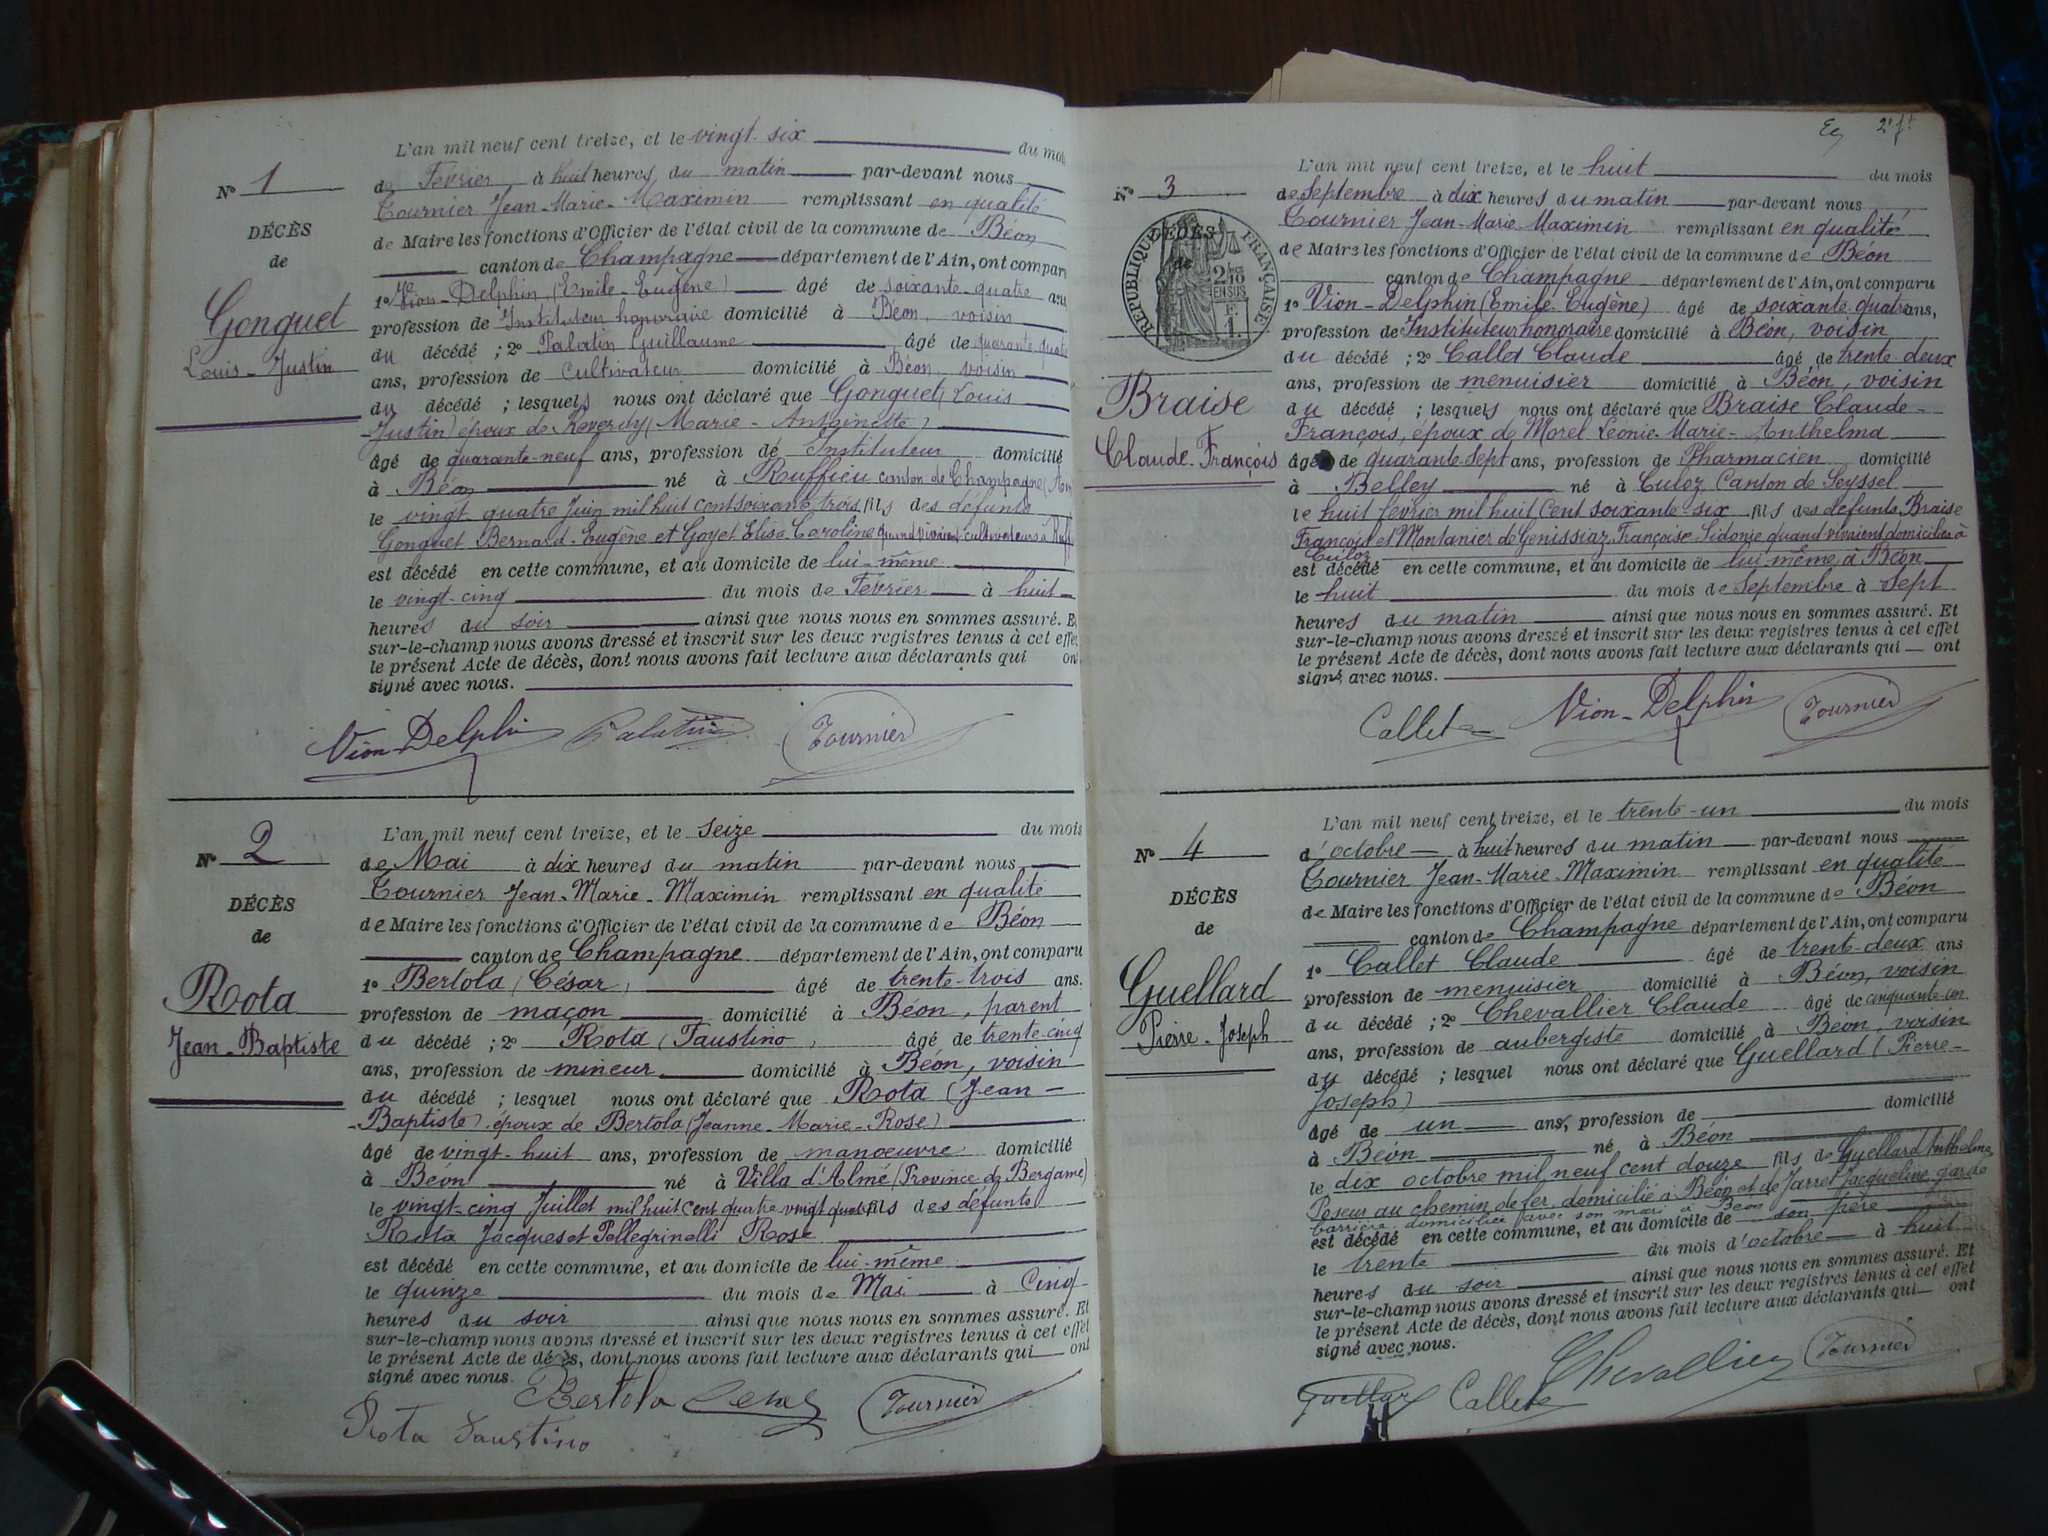 L'an mil neuf cent treize, et le vingt-six du mois
N° 1
de Février à huit heures du matin par-devant nous
Tournier Jean-Marie-Maximin remplissant en qualité
DÉCÈS
de Maire les fonctions d'Officier de l'état civil de la commune de Béon
de
canton de Champagne département de l'Ain, ont comparu
Gonguet
Louis-Justin
1° Vion-Delphin (Emile-Eugène) âgé de soixante-quatre ans
profession de Instituteur honoraire domicilié à Béon, voisin
du décédé ; 2° Palatin Guillaume âgé de quarante-quatre
ans, profession de cultivateur domicilié à Béon, voisin
du décédé ; lesquels nous ont déclaré que Gonguet (Louis
Justin) époux de Reverdy (Marie-Antoinette)
âgé de quarante-neuf ans, profession de Instituteur domicilié
à Béon né à Ruffieu canton de Champagne (Ain
le vingt-quatre Juin mil huit cent soixante trois fils des défunts
Gonguet Bernard-Eugène et Goyet Elisa Caroline quand vivaient cultivateurs à
est décédé en cette commune, et au domicile de lui-même
le vingt-cinq du mois de Février à huit
heures du soir ainsi que nous nous en sommes assuré. Et
sur-le-champ nous avons dressé et inscrit sur les deux registres tenus à cet effet
le présent Acte de décès, dont nous avons fait lecture aux déclarants qui ont
signé avec nous.
Vion-Delphin Palatin Tournier
L'an mil neuf cent treize, et le seize du mois
N° 2
de Mai à dix heures du matin par-devant nous
Tournier Jean-Marie-Maximin remplissant en qualité
DÉCÈS
de Maire les fonctions d'Officier de l'état civil de la commune de Béon
de
canton de Champagne département de l'Ain, ont comparu
Rota
Jean-Baptiste
1° Bertola (César) âgé de trente-trois ans.
profession de maçon domicilié à Béon, parent
du décédé ; 2° Rota (Faustino) âgé de trente-cinq
ans, profession de mineur domicilié à Béon, voisin
du décédé ; lesquel nous ont déclaré que Rota (Jean-
Baptiste) époux de Bertola (Jeanne-Marie-Rose)
âgé de vingt-huit ans, profession de manoeuvre domicilié
à Béon né à Villa d'Almé (Province de Bergame)
le vingt-cinq Juillet mil huit cent quatre vingt quatre fils des défunts
Rota Jacques et Pellegrinelli Rose
est décédé en cette commune, et au domicile de lui-même
le quinze du mois de Mai à cinq
heures du soir ainsi que nous nous en sommes assuré. Et
sur-le-champ nous avons dressé et inscrit sur les deux registres tenus à cet effet
le présent Acte de décès, dont nous avons fait lecture aux déclarants qui ont
signé avec nous.
Bertola Cesar Tournier
Rota Faustino
2e ft
L'an mil neuf cent treize, et le huit du mois
N° 3
de Septembre à dix heures du matin par-devant nous
Tournier Jean-Marie-Maximin remplissant en qualité
RÉPUBLIQUE FRANÇAISE
DÉCÈS
de
2/10 EN SUS
1 F.
de Maire les fonctions d'Officier de l'état civil de la commune de Béon
canton de Champagne département de l'Ain, ont comparu
Braise
Claude-François
1° Vion-Delphin (Emile-Eugène) âgé de soixante-quatre ans,
profession de Instituteur honoraire domicilié à Béon, voisin
du décédé ; 2° Callet Claude âgé de trente-deux
ans, profession de menuisier domicilié à Béon, voisin
du décédé ; lesquels nous ont déclaré que Braise Claude-
François, époux de Morel Léonie-Marie-Anthelma
âgé de quarante-sept ans, profession de Pharmacien domicilié
à Belley né à Culoz Canton de Seyssel
le huit février mil huit cent soixante six fils des défunts Braise
François et Montanier de Genissiaz Françoise Sidonie quand vivaient domiciliés à
Culoz
est décédé en cette commune, et au domicile de lui même, à Béon
le huit du mois de Septembre à sept
heures du matin ainsi que nous nous en sommes assuré. Et
sur-le-champ nous avons dressé et inscrit sur les deux registres tenus à cet effet
le présent Acte de décès, dont nous avons fait lecture aux déclarants qui ont
signé avec nous.
Callet Vion-Delphin Tournier
L'an mil neuf cent treize, et le trente-un du mois
N° 4
d'octobre à huit heures du matin par-devant nous
Tournier Jean-Marie-Maximin remplissant en qualité
DÉCÈS
de Maire les fonctions d'Officier de l'état civil de la commune de Béon
de
canton de Champagne département de l'Ain, ont comparu
Guellard
Pierre-Joseph
1° Callet Claude âgé de trente-deux ans
profession de menuisier domicilié à Béon, voisin
du décédé ; 2° Chevallier Claude âgé de cinquante-un
ans, profession de aubergiste domicilié à Béon, voisin
du décédé ; lesquel nous ont déclaré que Guellard (Pierre-
Joseph)
âgé de un ans, profession de domicilié
à Béon né à Béon
le dix octobre mil neuf cent douze fils de Guellard Anthelme
Poseur au chemin de fer domicilié à Béon et de Jarret Jacqueline garde
barrière domiciliée avec son mari à Béon
est décédé en cette commune, et au domicile de son père
le trente du mois d'octobre à huit
heures du soir ainsi que nous nous en sommes assuré. Et
sur-le-champ nous avons dressé et inscrit sur les deux registres tenus à cet effet
le présent Acte de décès, dont nous avons fait lecture aux déclarants qui ont
signé avec nous.
Guellard Callet Chevallier Tournier